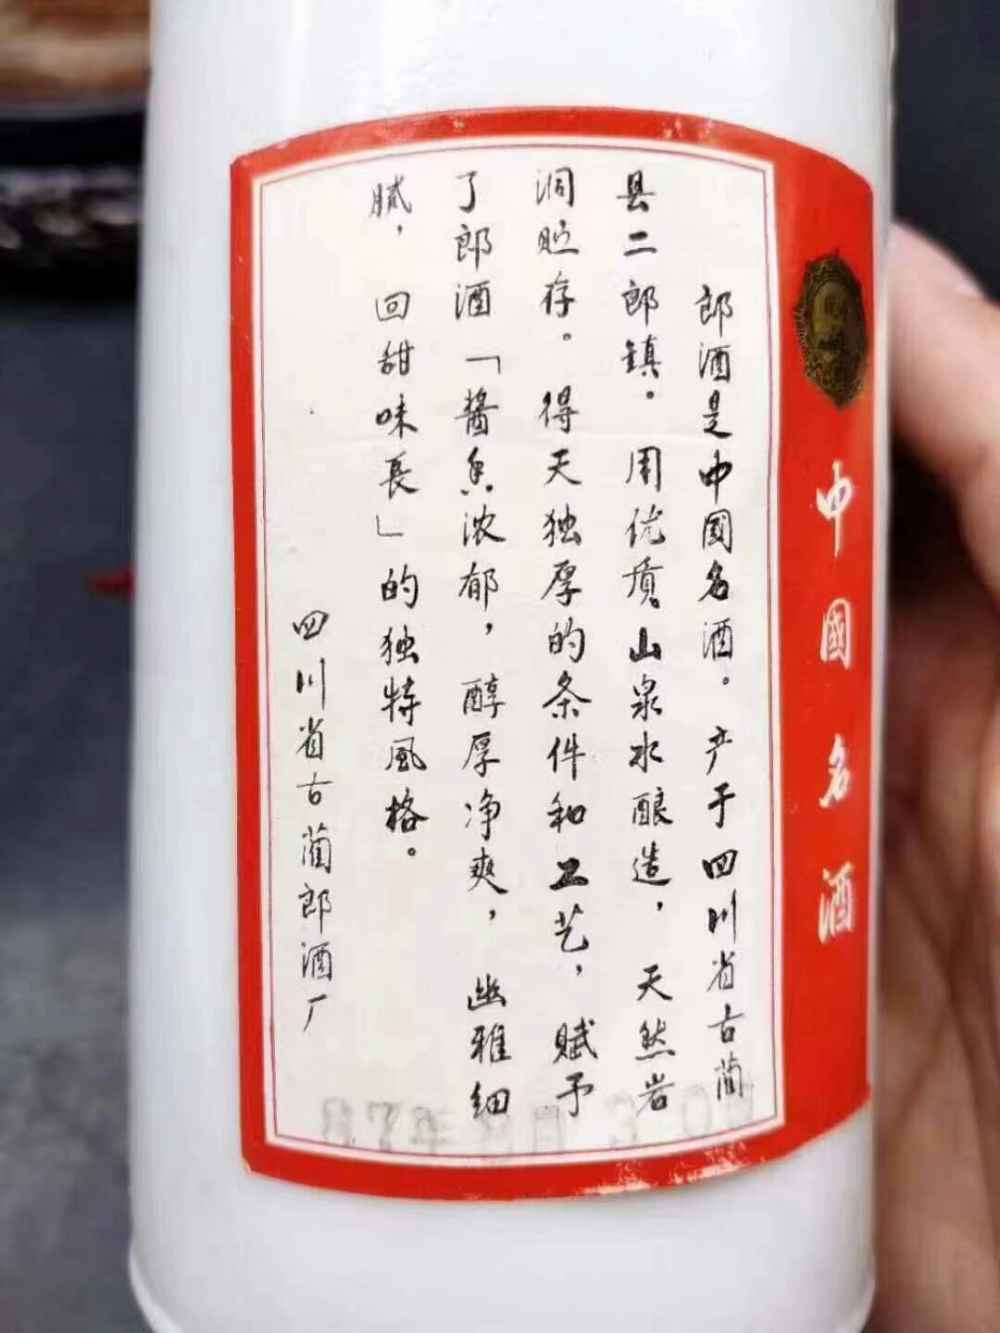 中國名酒
郎酒是中國名酒。产于四川省古蔺
县二郎镇。用优质山泉水酿造，天然岩
洞贮存。得天独厚的条件和工艺，赋予
了郎酒「醬香浓郁，醇厚净爽，幽雅细
腻，回甜味長」的独特風格。
四川省古蔺郎酒厂
87年